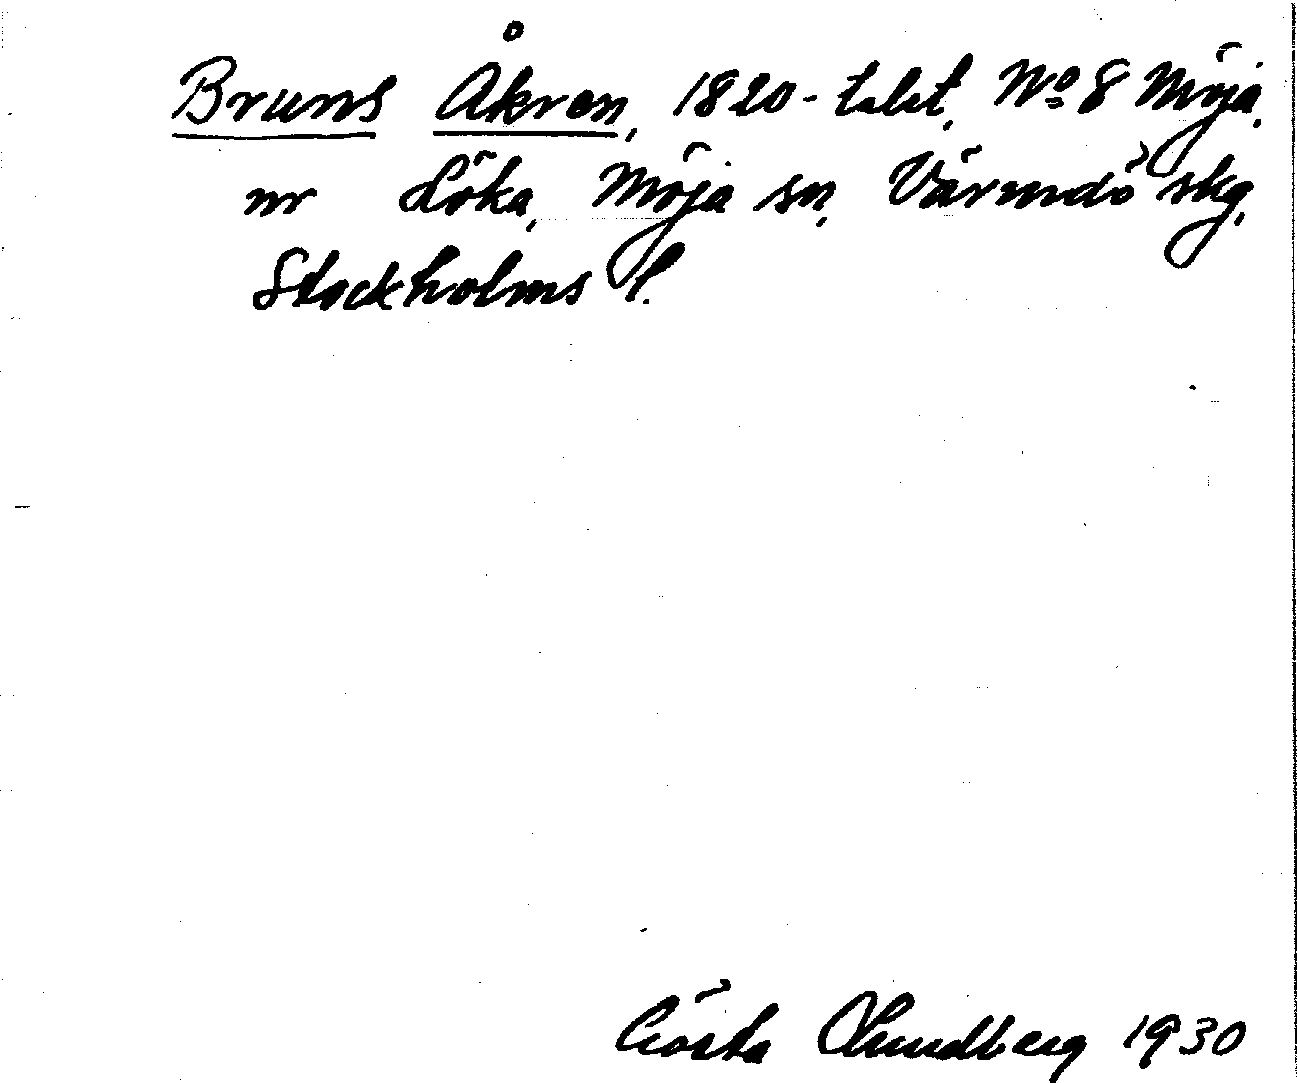 Bruns Åkren, 1820-talet, No 8 Möja,
nr Löka, Möja sn, Värmdö skg,
Stockholms l.
Gösta Lundberg 1930